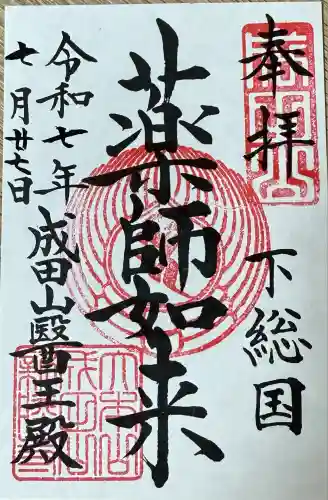 奉拝
下総国
薬師如来
令和七年
七月廿七日
成田山醫王殿